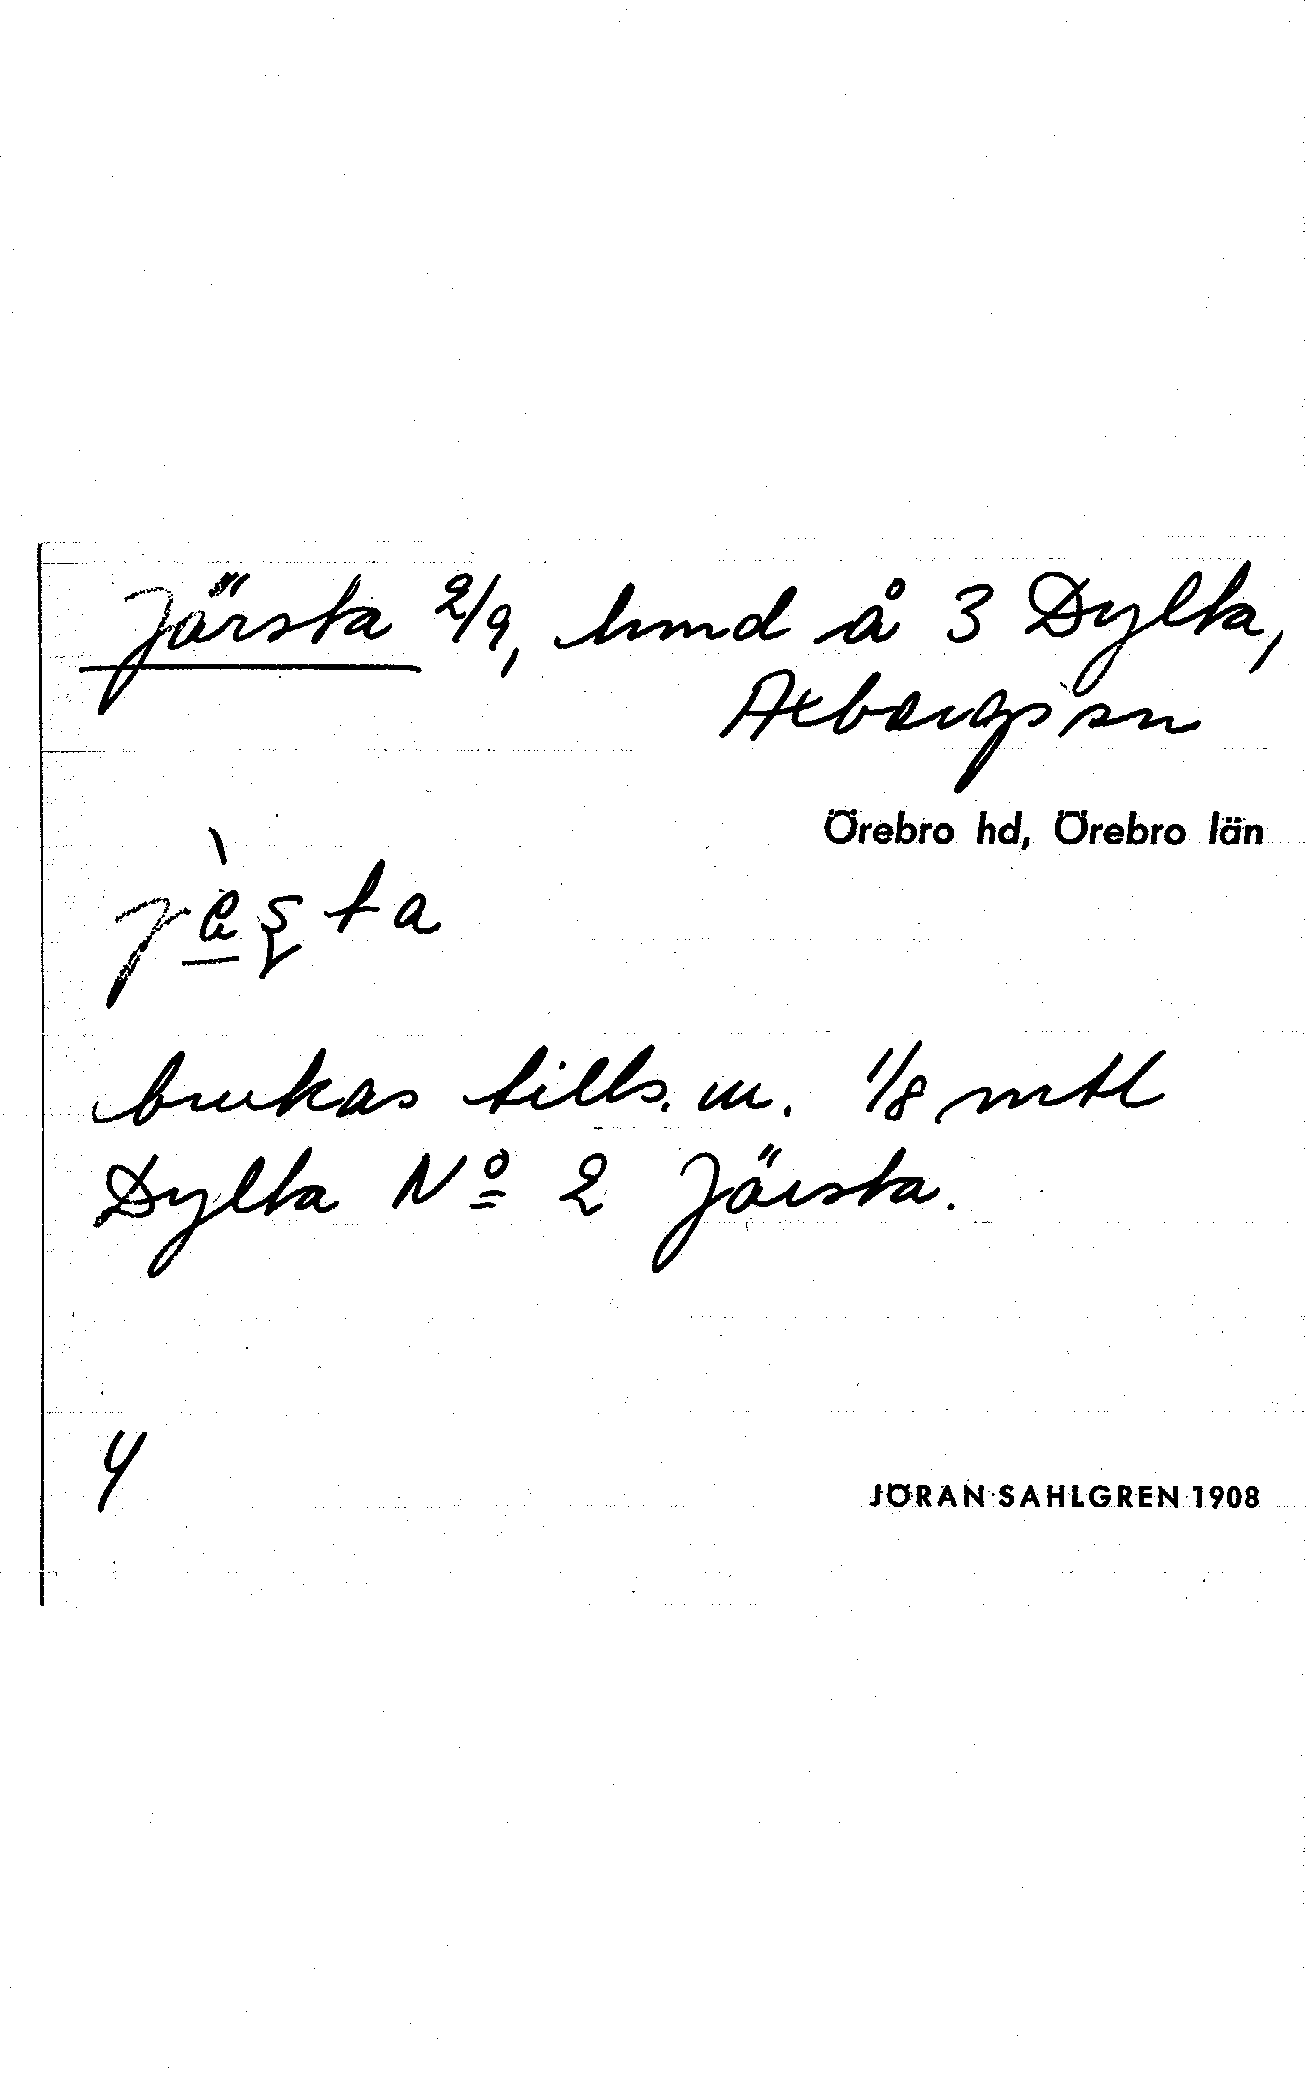 Järsta 2/9, hmd å 3 Dylta,
Axbergs sn
Örebro hd, Örebro län
jèṣta
brukas tills. m. 1/8 mtl
Dylta Nº 2 Järsta.
y
JÖRAN SAHLGREN 1908